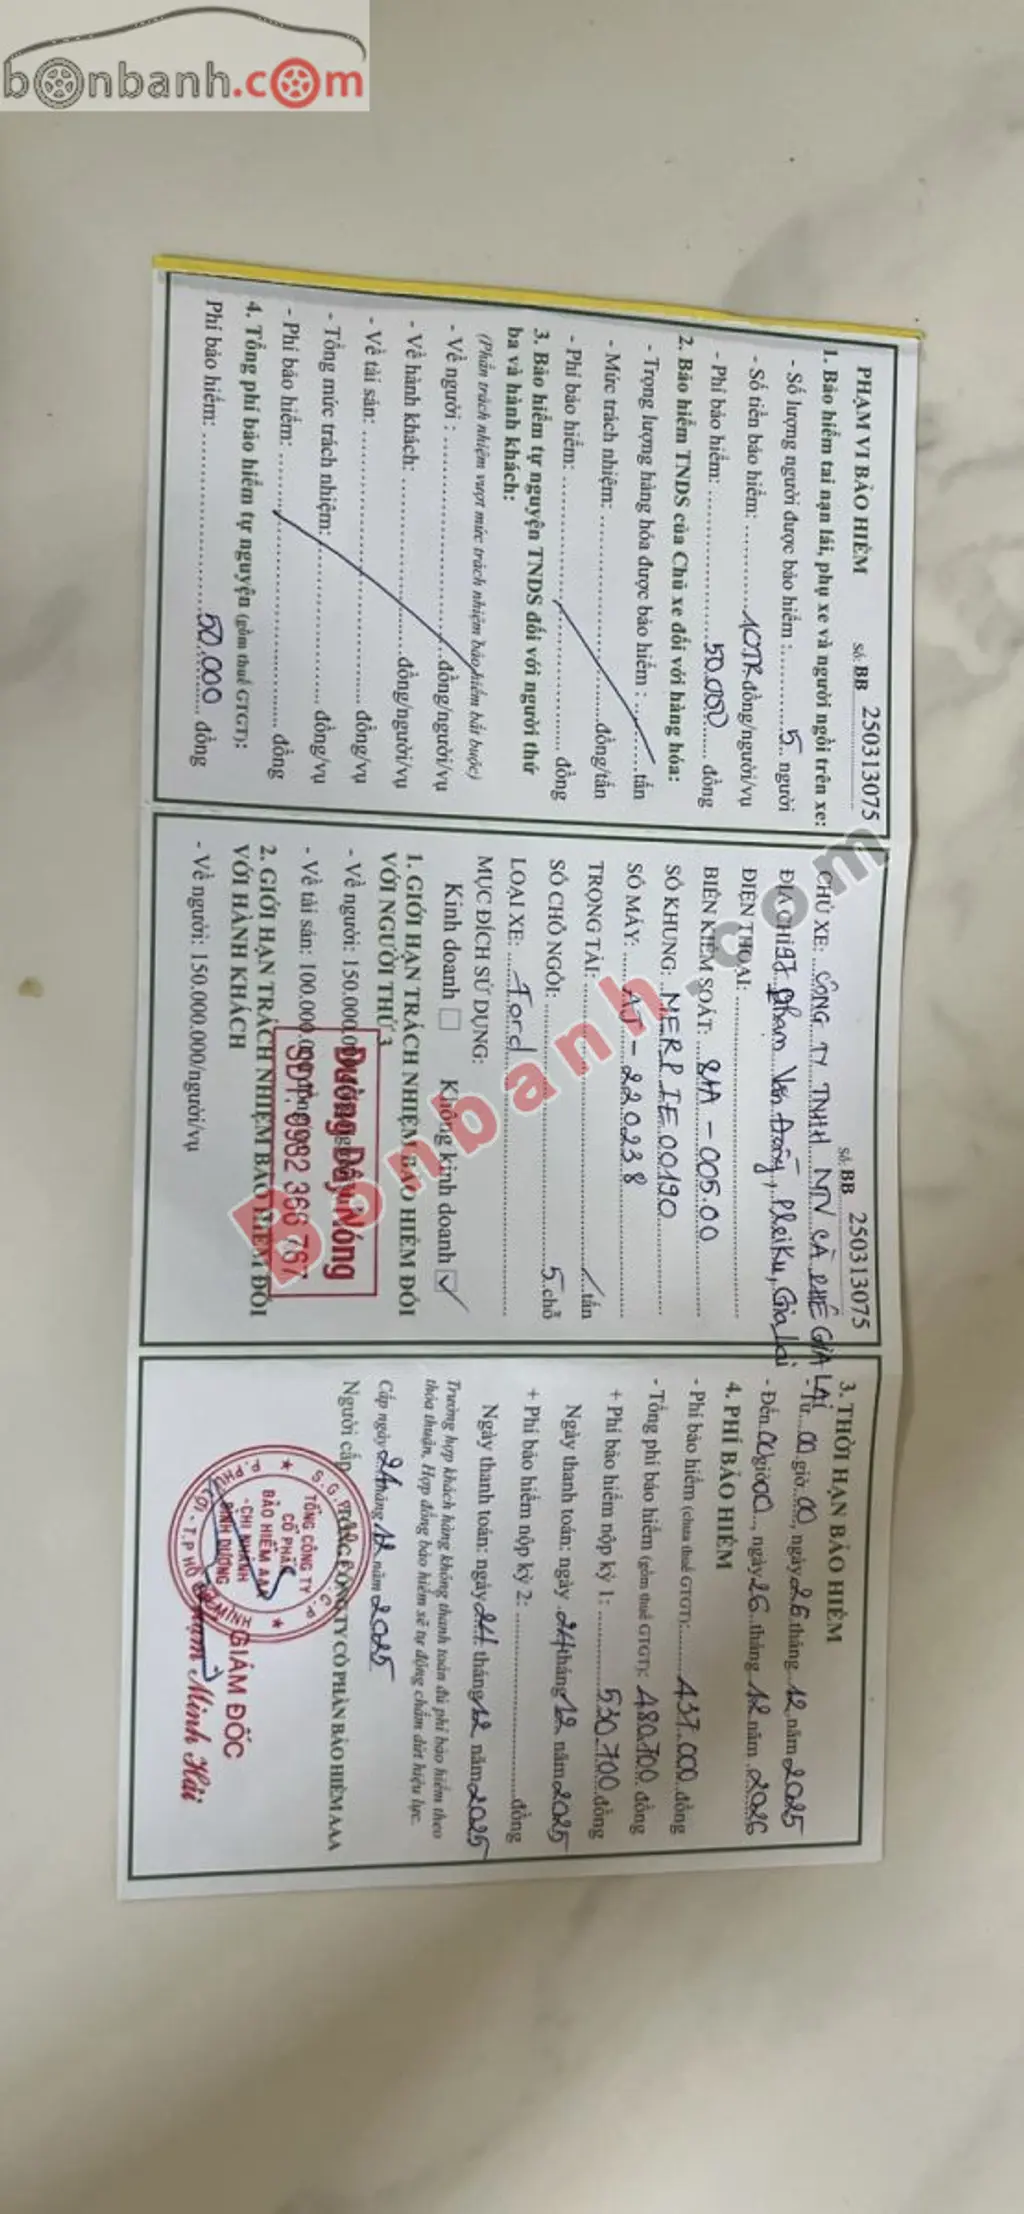 bonbanh.com
PHẠM VI BẢO HIỂM
Số: BB 250313075
1. Bảo hiểm tai nạn lái, phụ xe và người ngồi trên xe:
- Số lượng người được bảo hiểm : 5 người
- Số tiền bảo hiểm: 10TR đồng/người/vụ
- Phí bảo hiểm: 50.000 đồng
2. Bảo hiểm TNDS của Chủ xe đối với hàng hóa:
- Trọng lượng hàng hóa được bảo hiểm : tấn
- Mức trách nhiệm: đồng/tấn
- Phí bảo hiểm: đồng
3. Bảo hiểm tự nguyện TNDS đối với người thứ
ba và hành khách:
(Phần trách nhiệm vượt mức trách nhiệm bảo hiểm bắt buộc)
- Về người : đồng/người/vụ
- Về hành khách: đồng/người/vụ
- Về tài sản: đồng/vụ
- Tổng mức trách nhiệm: đồng/vụ
- Phí bảo hiểm: đồng
4. Tổng phí bảo hiểm tự nguyện (gồm thuế GTGT):
Phí bảo hiểm: 50.000 đồng
Số: BB 250313075
CHỦ XE: CÔNG TY TNHH MTV CÀ PHÊ GIA LAI
ĐỊA CHỈ: 97 Phạm Văn Đồng, Pleiku, Gia Lai
ĐIỆN THOẠI:
BIỂN KIỂM SOÁT: 81A - 005.00
SỐ KHUNG: NERPIE00190
SỐ MÁY: AJ - 220238
TRỌNG TẢI: tấn
SỐ CHỖ NGỒI: 5 chỗ
LOẠI XE: Ford
MỤC ĐÍCH SỬ DỤNG:
Kinh doanh Không kinh doanh
1. GIỚI HẠN TRÁCH NHIỆM BẢO HIỂM ĐỐI
VỚI NGƯỜI THỨ 3
- Về người: 150.000.000
- Về tài sản: 100.000.000
Đường Dây Nóng
SĐT: 0992 366 767
2. GIỚI HẠN TRÁCH NHIỆM BẢO HIỂM ĐỐI
VỚI HÀNH KHÁCH
- Về người: 150.000.000/người/vụ
3. THỜI HẠN BẢO HIỂM
- Từ 00 giờ 00, ngày 26 tháng 12 năm 2025
- Đến 00 giờ 00, ngày 26 tháng 12 năm 2026
4. PHÍ BẢO HIỂM
- Phí bảo hiểm (chưa thuế GTGT): 437.000 đồng
- Tổng phí bảo hiểm (gồm thuế GTGT): 480.700 đồng
+ Phí bảo hiểm nộp kỳ 1: 530.700 đồng
Ngày thanh toán: ngày 24 tháng 12 năm 2025
+ Phí bảo hiểm nộp kỳ 2: đồng
Ngày thanh toán: ngày 24 tháng 12 năm 2025
Trường hợp khách hàng không thanh toán đủ phí bảo hiểm theo
thỏa thuận, Hợp đồng bảo hiểm sẽ tự động chấm dứt hiệu lực.
Cấp ngày 24 tháng 12 năm 2025
Người cấp TỔNG CÔNG TY CỔ PHẦN BẢO HIỂM AAA
TỔNG CÔNG TY
CỔ PHẦN
BẢO HIỂM AAA
- CHI NHÁNH
BÌNH DƯƠNG
GIÁM ĐỐC
Phạm Minh Hải
Bonbanh.com